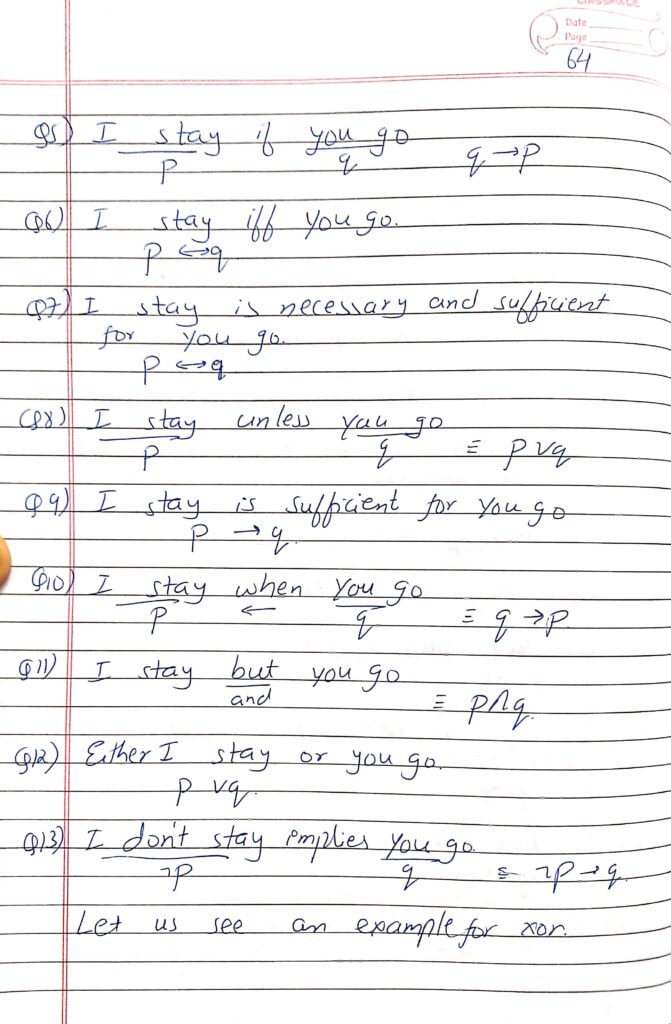 CLASSMATE
Date
Page
64
Q5) I stay if you go
p q q → p
Q6) I stay iff you go.
p ↔ q
Q7) I stay is necessary and sufficient
for you go.
p ↔ q
Q8) I stay unless you go
p q ≡ p ∨ q
Q9) I stay is sufficient for you go
p → q
Q10) I stay when you go
p ← q ≡ q → p
Q11) I stay but you go
and ≡ p ∧ q.
Q12) Either I stay or you go.
p ∨ q.
Q13) I don't stay implies you go
¬p q ≡ ¬p → q
Let us see an example for xor.